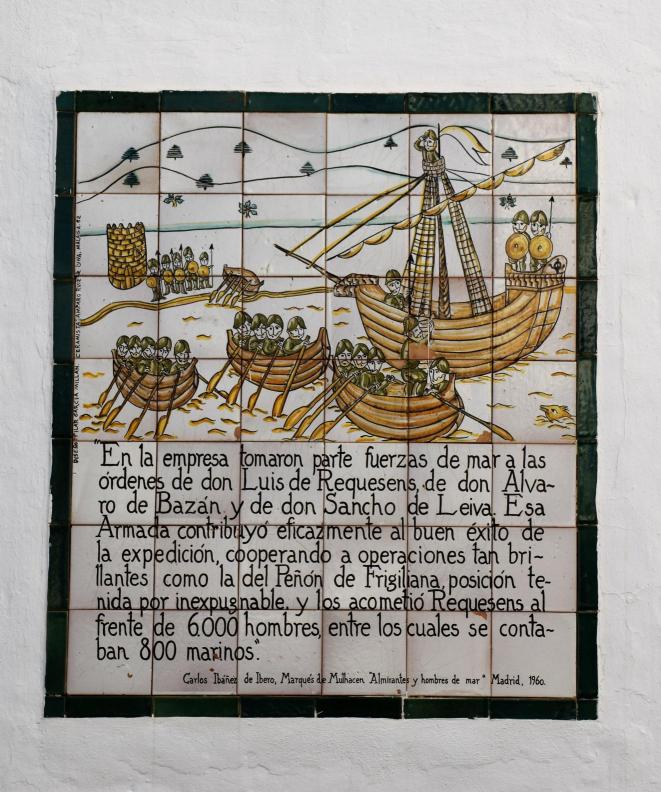 "En la empresa tomaron parte fuerzas de mar a las
órdenes de don Luis de Requesens, de don Álva-
ro de Bazán y de don Sancho de Leiva. Esa
Armada contribuyó eficazmente al buen éxito de
la expedición, cooperando a operaciones tan bri-
llantes como la del Peñón de Frigiliana, posición te-
nida por inexpugnable, y los acometió Requesens al
frente de 6.000 hombres, entre los cuales se conta-
ban 800 marinos".
Carlos Ibáñez de Ibero, Marqués de Mulhacen. "Almirantes y hombres de mar" Madrid, 1960.
DISEÑO: PILAR GARCIA MILLAN. CERAMISTA: AMPARO RUIZ DE LUNA. MALAGA 82